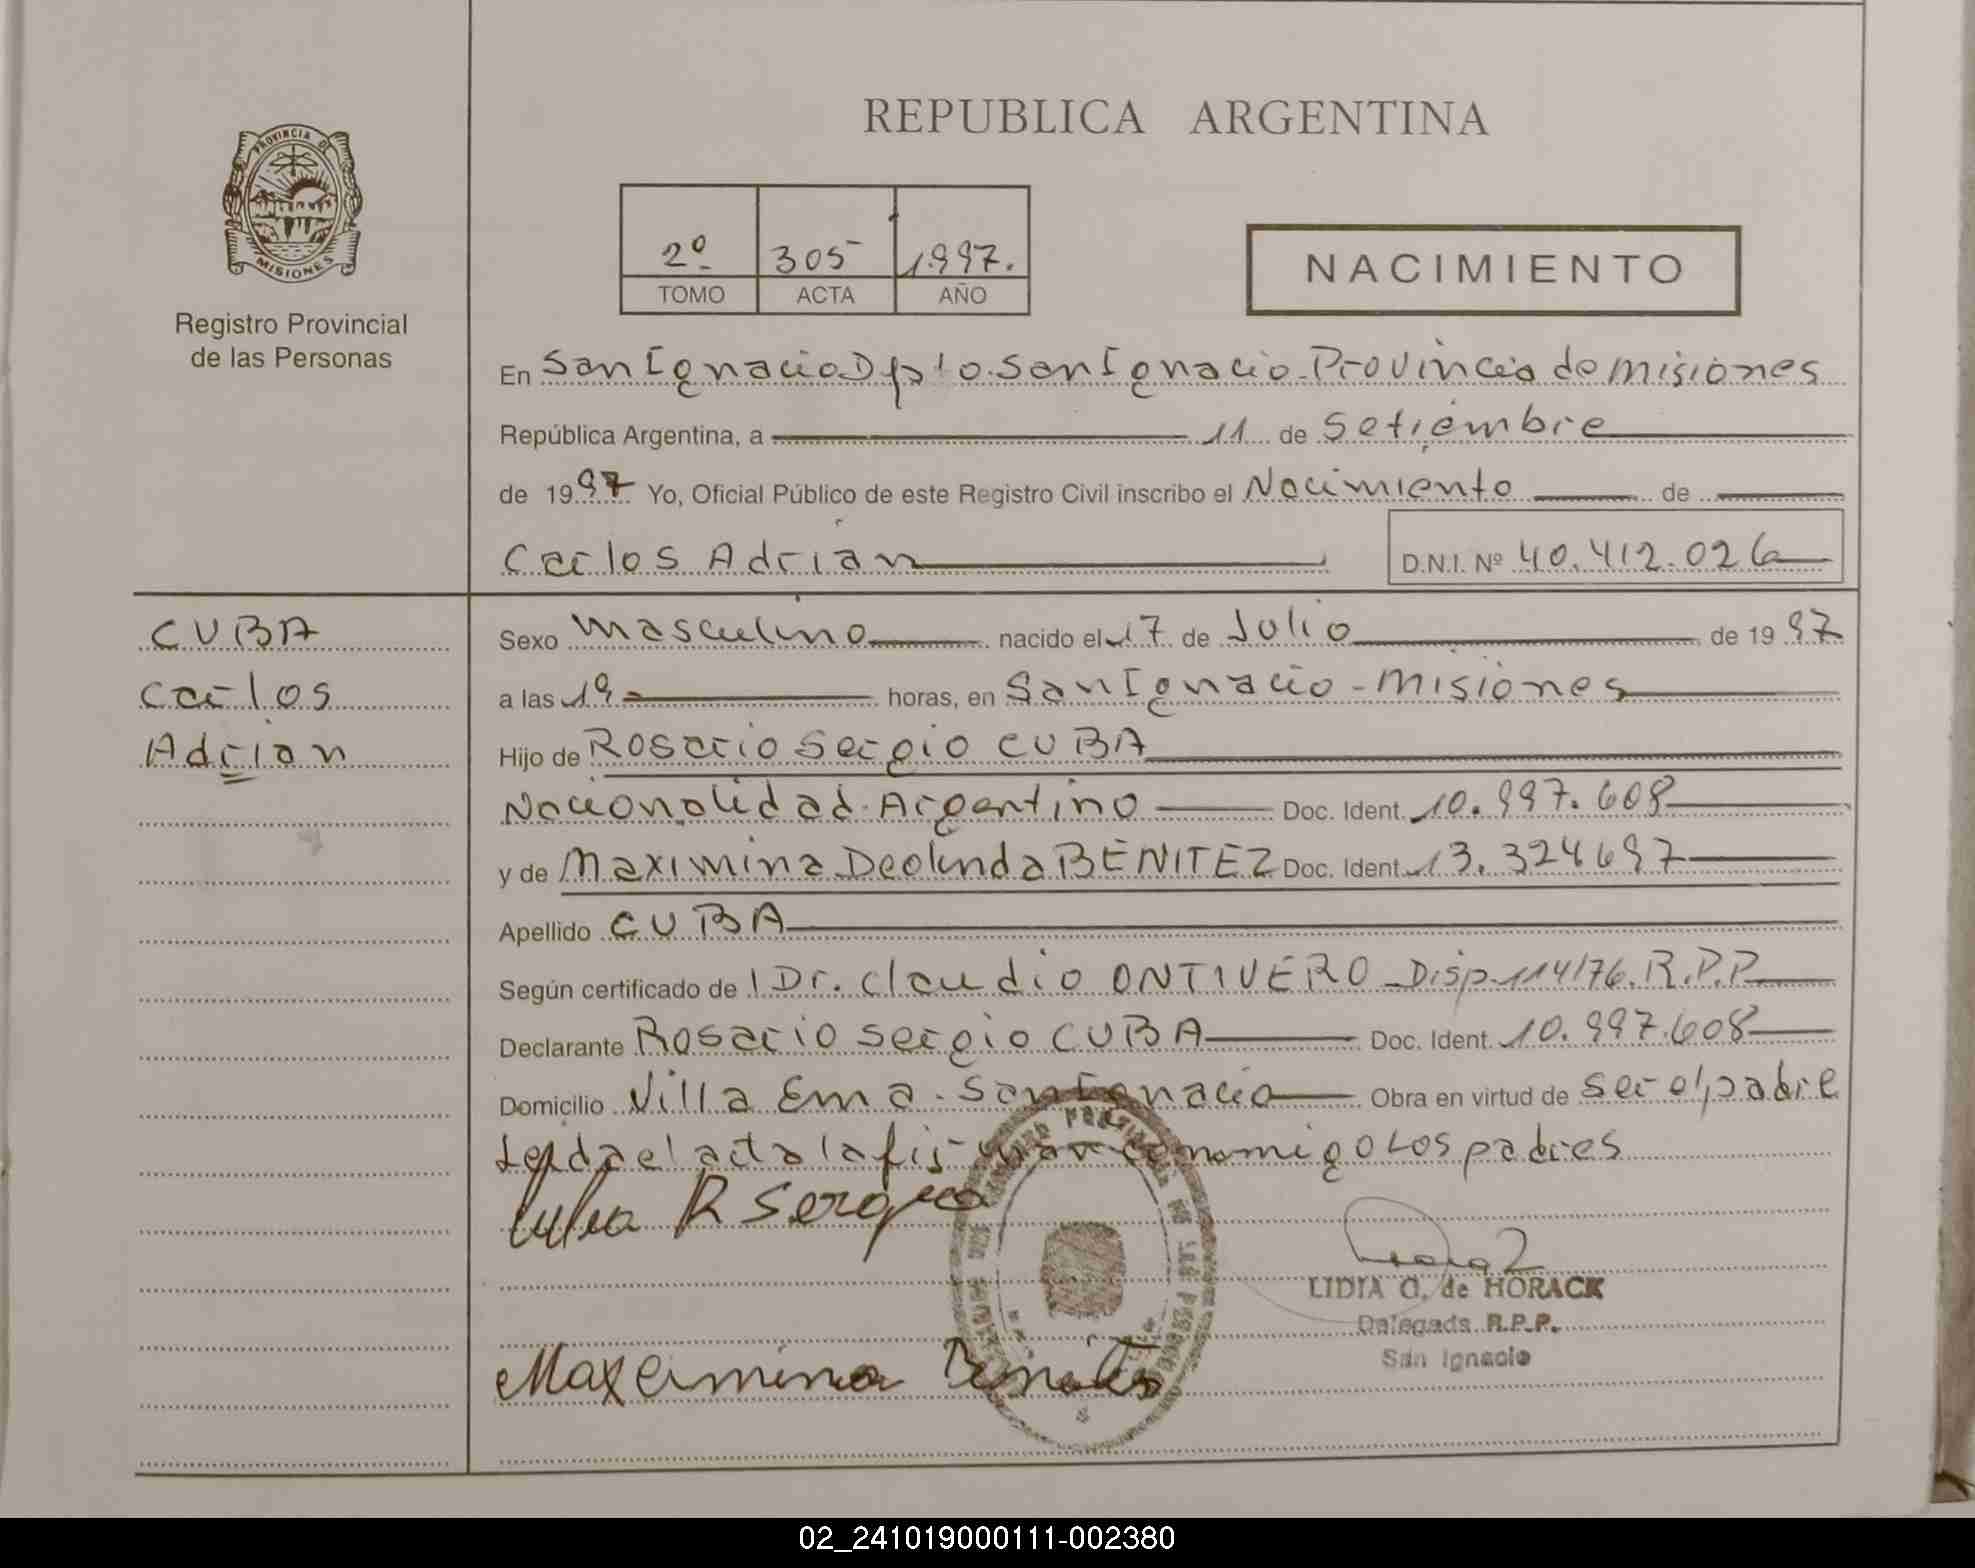 REPUBLICA ARGENTINA
PROVINCIA DE
MISIONES
Registro Provincial
de las Personas
2º 305 1997.
TOMO ACTA AÑO
NACIMIENTO
En San Ignacio Dpto. San Ignacio. Provincia de misiones
República Argentina, a 11 de Setiembre
de 1997 Yo, Oficial Público de este Registro Civil inscribo el Nacimiento de
Carlos Adrian D.N.I. Nº 40.412.026
CUBA
Carlos
Adrian
Sexo masculino nacido el 17 de Julio de 1997
a las 19 horas, en San Ignacio - misiones
Hijo de Rosario Sergio CUBA
Nacionalidad Argentino Doc. Ident. 10.997.608
y de Maximina Deolinda BENITEZ Doc. Ident. 13.324697
Apellido CUBA
Según certificado de Dr. Claudio ONTIVERO Disp. 114/76. R.P.P
Declarante Rosario Sergio CUBA Doc. Ident. 10.997.608
Domicilio Villa Ema. San Ignacio Obra en virtud de ser el padre
Leida el acta la fir- man conmigo Los padres
R Sergio
LIDIA O. de HORACK
Delegada R.P.P.
San Ignacio
Maxemina Benites
02_241019000111-002380